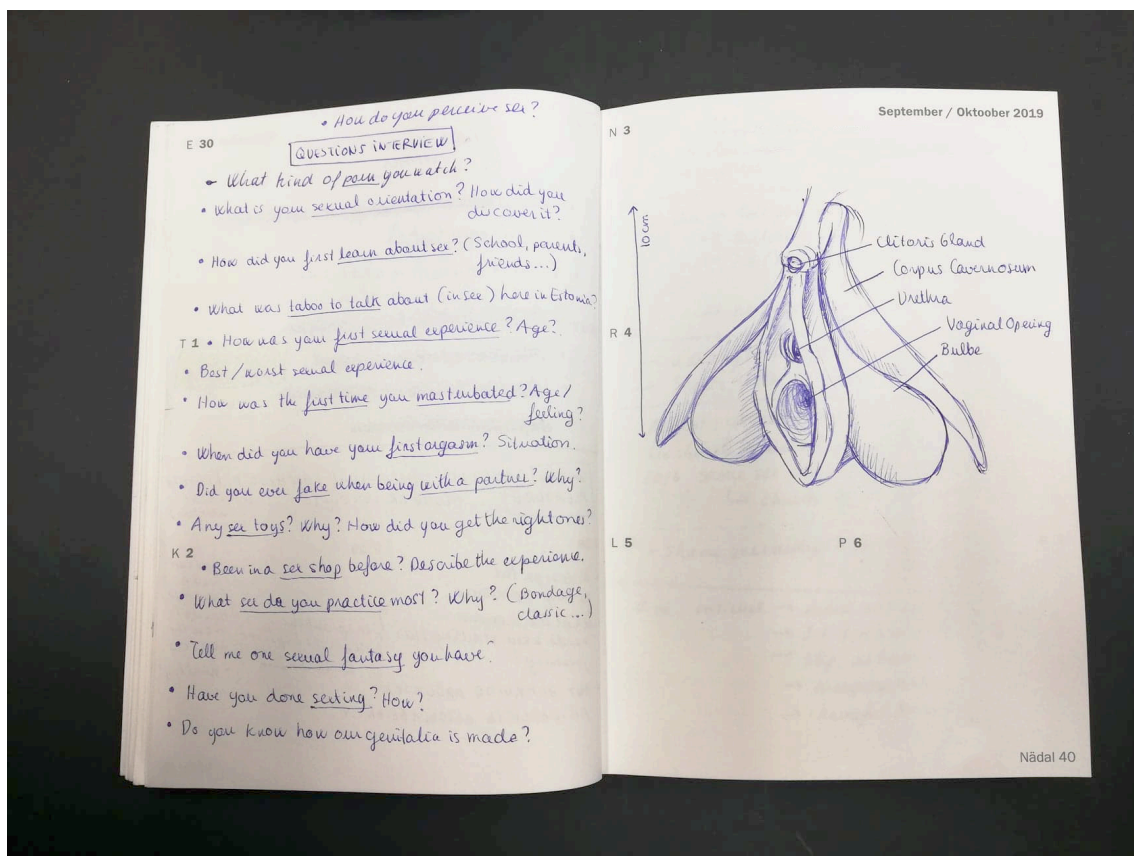 • How do you perceive sex?
E 30
QUESTIONS INTERVIEW
• What kind of porn you watch?
• What is your sexual orientation? How did you
discover it?
• How did you first learn about sex? (School, parents,
friends...)
• What was taboo to talk about (in sex) here in Estonia?
T 1 • How was your first sexual experience? Age?
• Best/worst sexual experience.
• How was the first time you masturbated? Age/
feeling?
• When did you have your first orgasm? Situation.
• Did you ever fake when being with a partner? Why?
• Any sex toys? Why? How did you get the right ones?
K 2
• Been in a sex shop before? Describe the experience.
• What sex do you practice most? Why? (Bondage,
classic...)
• Tell me one sexual fantasy you have.
• Have you done sexting? How?
• Do you know how our genitalia is made?
September / Oktoober 2019
N 3
10 cm
Clitoris Gland
Corpus Cavernosum
Urethra
R 4
Vaginal Opening
Bulbe
L 5
P 6
Nädal 40